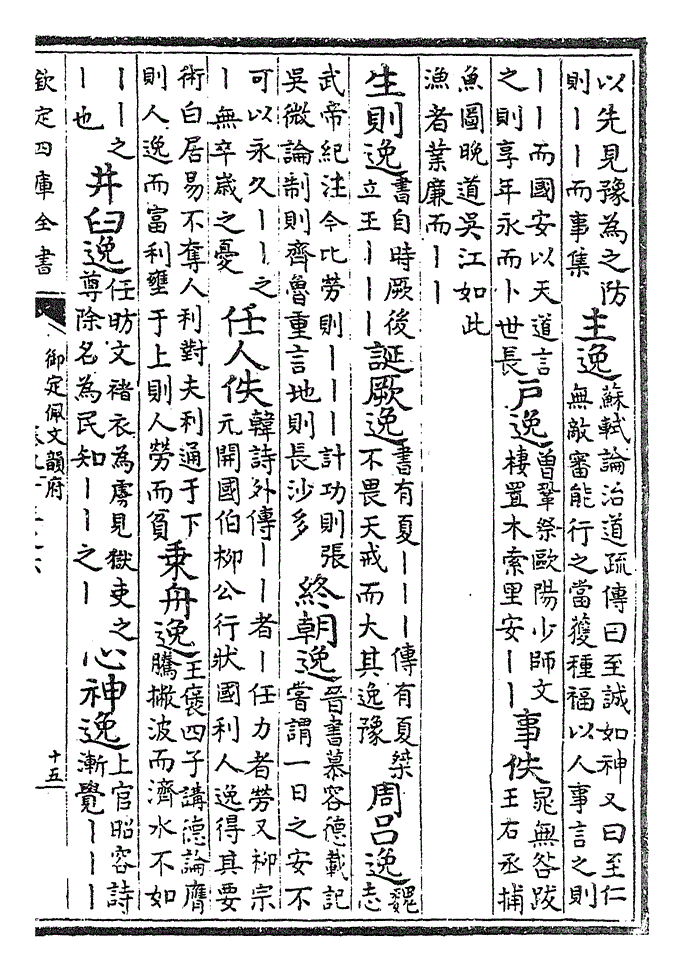 以先見豫為之防
則丨丨而事集
主逸
蘇軾論治道疏傳曰至誠如神又曰至仁
無敵審能行之當獲種福以人事言之則
丨丨而國安以天道言
之則享年永而卜世長
戶逸
曾鞏祭歐陽少師文
棲置木索里安丨丨
事佚
晁無咎跋
王右丞捕
魚圖晚道吳江如此
漁者業廉而丨丨
生則逸
書自時厥後
立王丨丨丨
誕厥逸
書有夏丨丨丨傳有夏桀
不畏天戒而大其逸豫
周呂逸
魏
志
武帝紀注今比勞則丨丨丨計功則張
吳微論制則齊魯重言地則長沙多
終朝逸
晉書慕容德載記
嘗謂一日之安不
可以永久丨丨之
丨無卒歲之憂
任人佚
韓詩外傳丨丨者丨任力者勞又柳宗
元開國伯柳公行狀國利人逸得其要
術白居易不奪人利對夫利通于下
則人逸而富利壅于上則人勞而貧
乘舟逸
王褒四子講德論膺
騰撇波而濟水不如
丨丨之
丨也
井臼逸
任昉文褚衣為虜見獄吏之
尊除名為民知丨丨之丨
心神逸
上官昭容詩
漸覺丨丨丨
欽定四庫全書
御定佩文韻府
十五